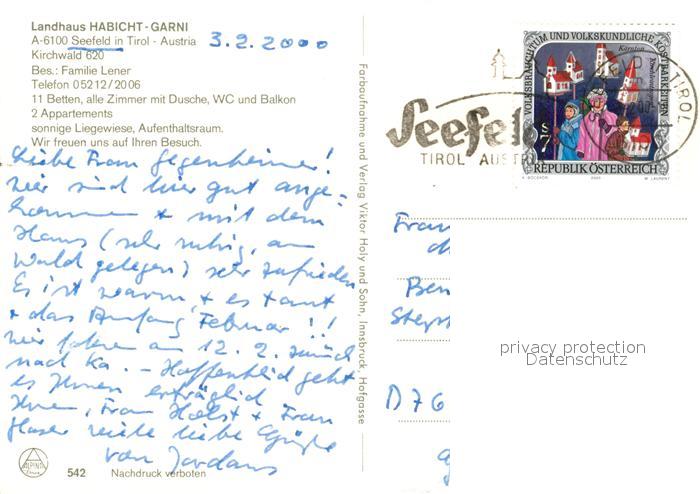 Landhaus HABICHT-GARNI
A-6100 Seefeld in Tirol - Austria
3.2.2000
Kirchwald 620
Bes.: Familie Lener
Telefon 05212/2006
11 Betten, alle Zimmer mit Dusche, WC und Balkon
2 Appartements
sonnige Liegewiese, Aufenthaltsraum.
Wir freuen uns auf Ihren Besuch.
Liebe Frau Gegenheimer!
Wir sind hier gut ange-
kommen + mit dem
Haus (sehr ruhig, am
Wald gelegen) sehr zufrieden
Es ist warm + es taut
+ das Anfang Februar!!
Wir fahren am 12. 2. zurück
nach Ka. - Hoffentlich geht
es Ihnen erträglich
Ihnen, Frau Holst + Frau
Glaser viele liebe Grüße
von Jordans
ALPINA
542
Nachdruck verboten
Farbaufnahme und Verlag Viktor Holy und Sohn, Innsbruck, Hofgasse
Seefel
TIROL AUSTR
TIROL
VOLKSBRAUCHTUM UND VOLKSKUNDLICHE KOSTBARKEITEN
Kärnten
S 7
REPUBLIK ÖSTERREICH
2000
W. LAURENT
Frau
Ben
Steph
D 76
privacy protection
Datenschutz